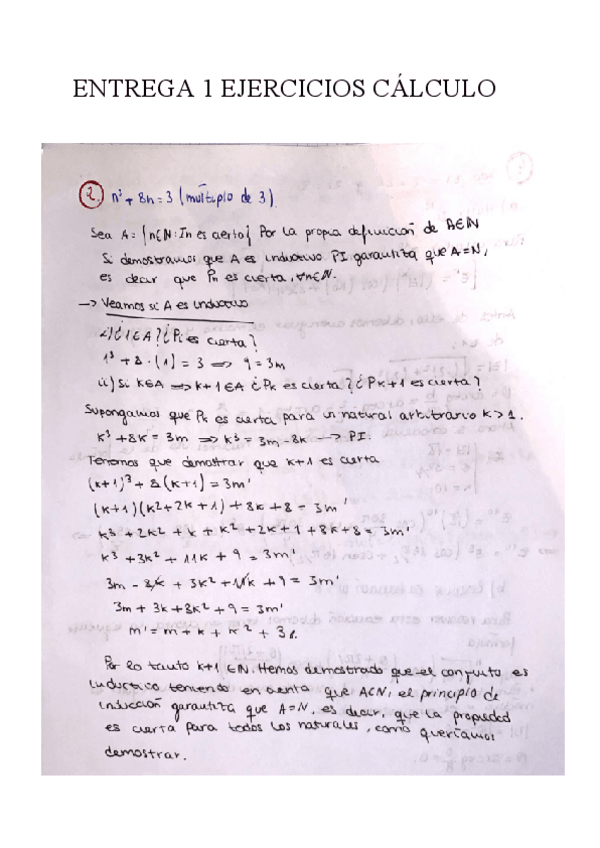 ENTREGA 1 EJERCICIOS CÁLCULO
2. n³ + 8n = 3 (múltiplo de 3)
Sea A = {n∈N : Pn es cierta} Por la propia definición de A⊂N
Si demostramos que A es inductivo PI garantiza que A = N,
es decir que Pn es cierta, ∀n∈N.
→ Veamos si A es inductivo
i) ¿1∈A? ¿P1 es cierta?
1³ + 8 · (1) = 3 ⟹ 9 = 3m
ii) Si K∈A ⟹ K+1∈A ¿Pk es cierta? ¿Pk+1 es cierta?
Supongamos que Pk es cierta para un natural arbitrario K > 1.
K³ + 8K = 3m ⟹ K³ = 3m - 8K → PI.
Tenemos que demostrar que K+1 es cierta
(K+1)³ + 8(K+1) = 3m'
(K+1)(K²+2K+1) + 8K + 8 = 3m'
K³ + 2K² + K + K² + 2K + 1 + 8K + 8 = 3m'
K³ + 3K² + 11K + 9 = 3m'
3m - 8K + 3K² + 11K + 9 = 3m'
3m + 3K + 3K² + 9 = 3m'
m' = m + K + K² + 3
Por lo tanto K+1 ∈ N. Hemos demostrado que el conjunto es
inductivo teniendo en cuenta que A⊂N, el principio de
inducción garantiza que A = N, es decir, que la propiedad
es cierta para todos los naturales, como queríamos
demostrar.